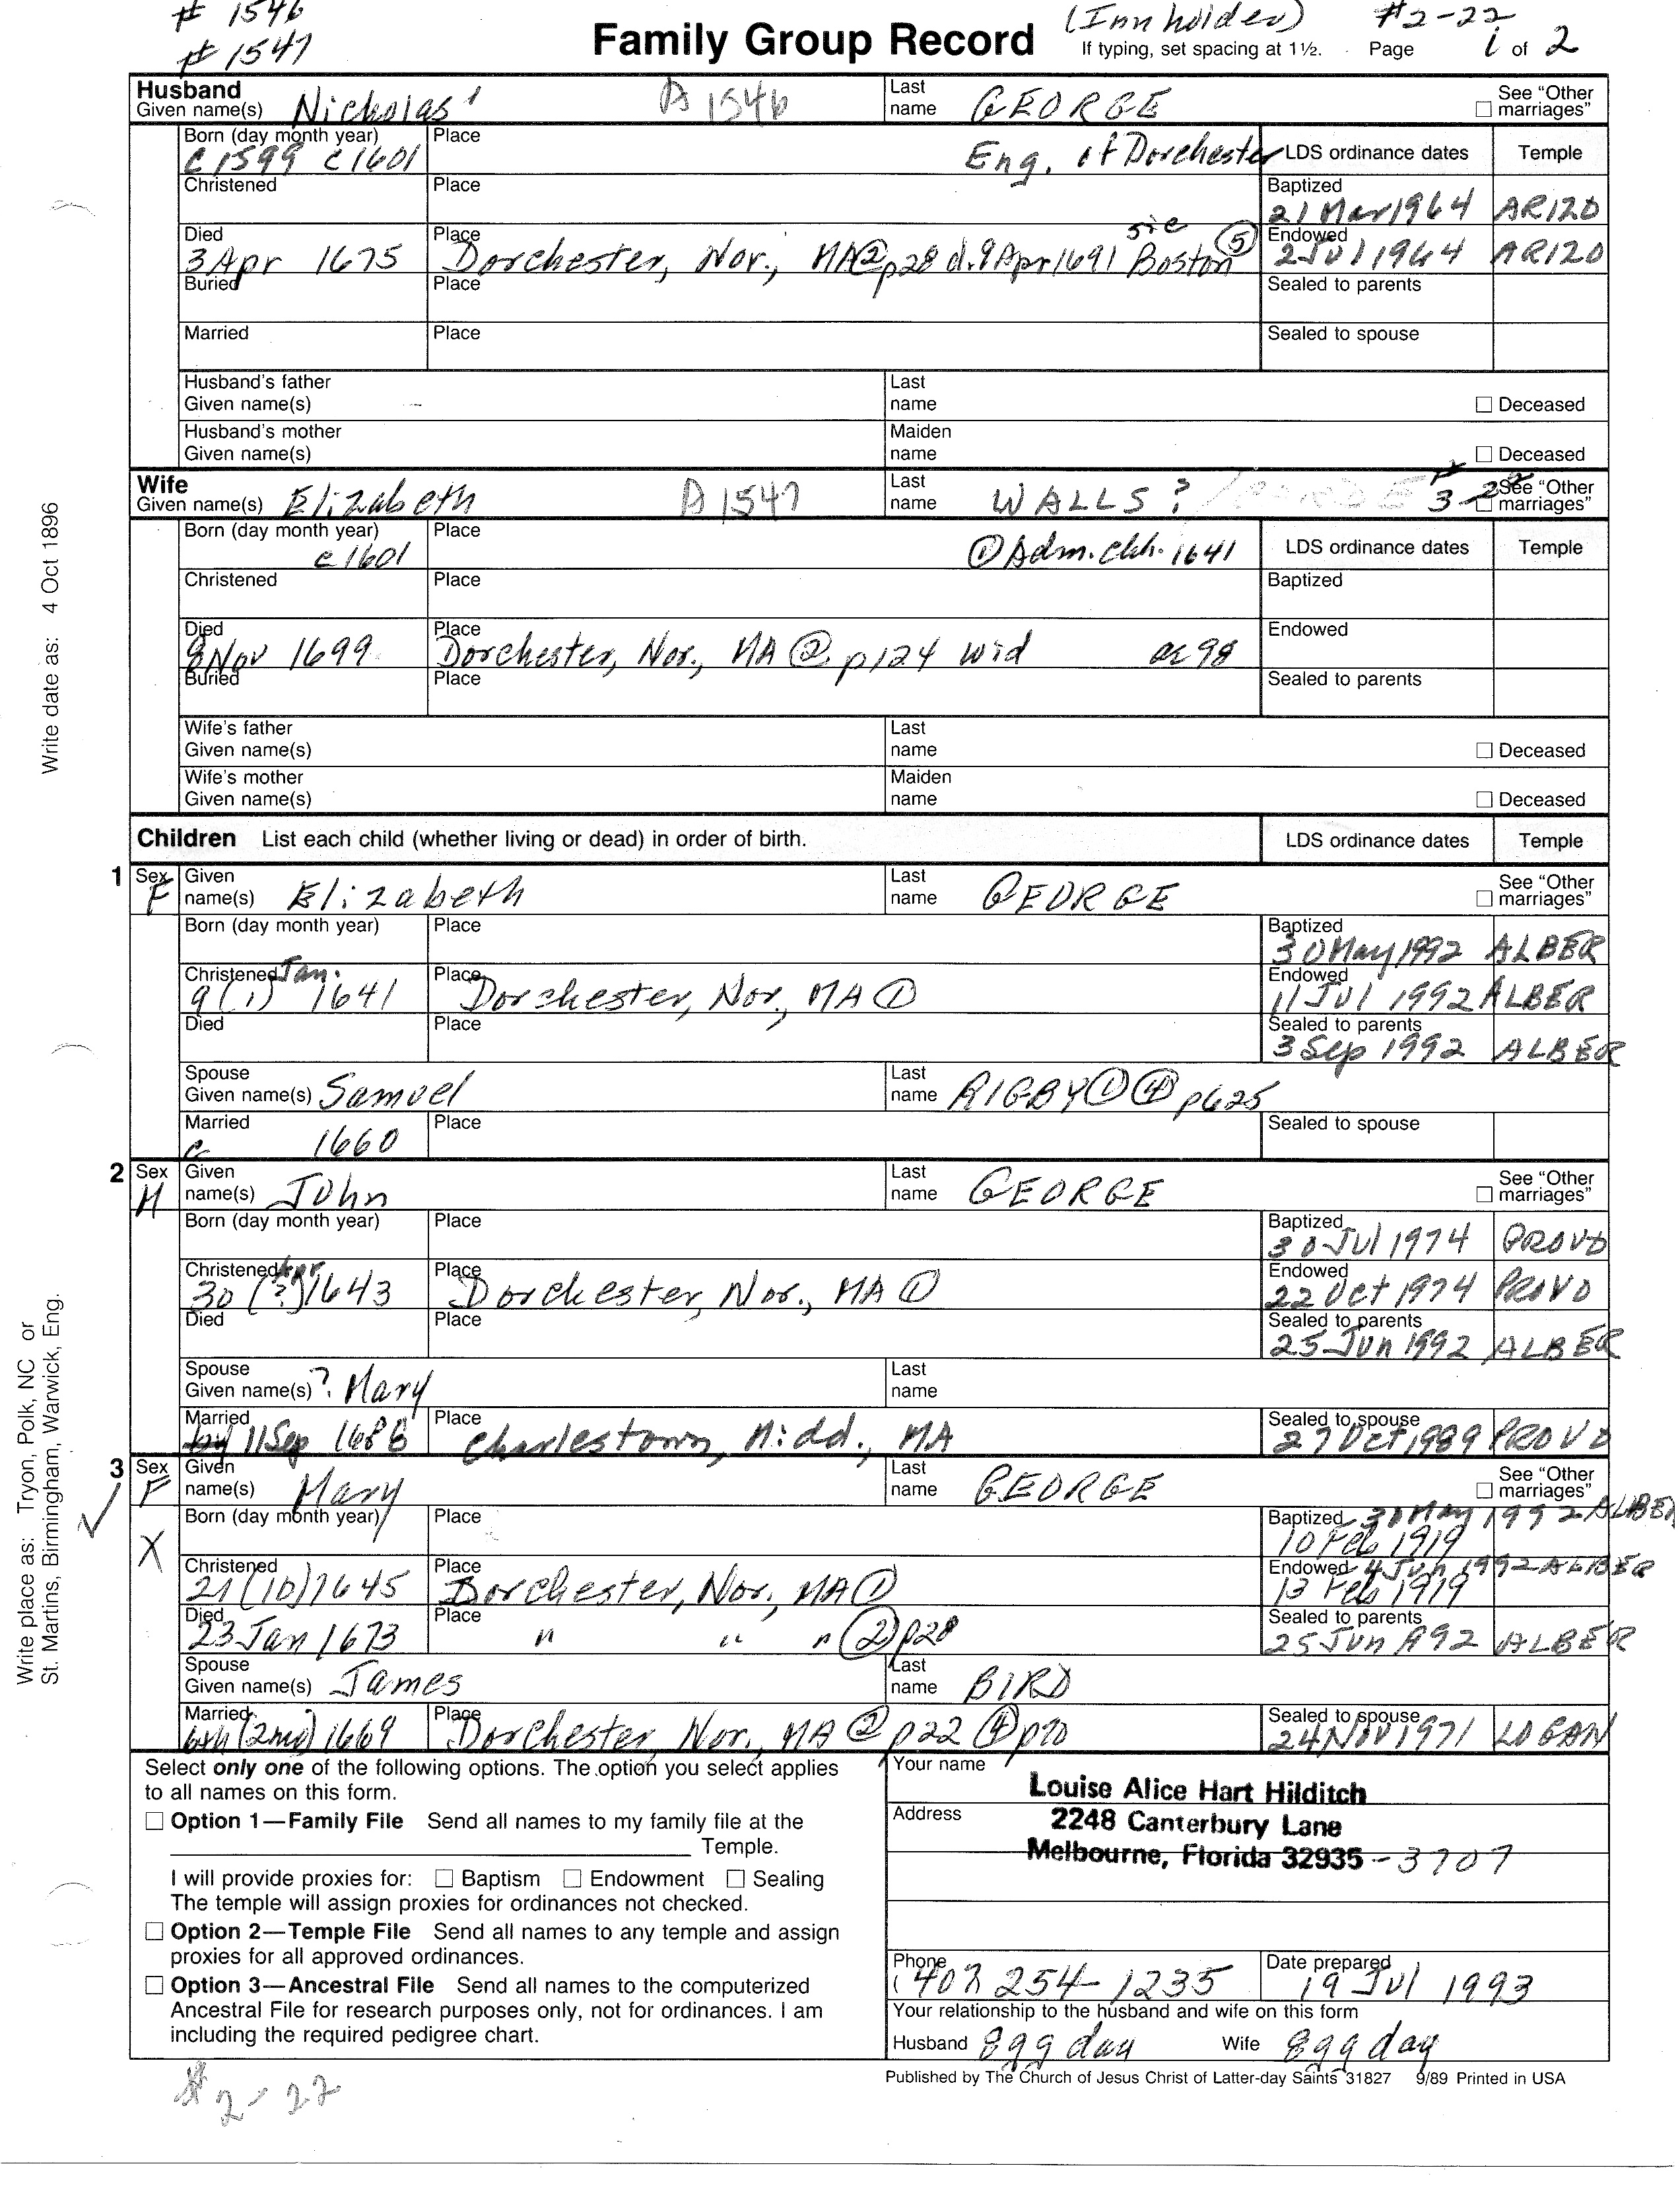 # 1546
# 1547
Family Group Record
(Innholder) #2-22
If typing, set spacing at 1½. Page 1 of 2
Husband
Given name(s) Nicholas¹ A 1546 Last name GEORGE See "Other marriages"
Born (day month year) c1599 c1601 Place Eng. of Dorchester LDS ordinance dates Temple
Christened Place Baptized 21 Mar 1964 ARIZO
Died 3 Apr 1675 Place Dorchester, Nor., MA ② p28 d. 9 Apr 1691 sic Boston ⑤ Endowed 2 Jul 1964 ARIZO
Buried Place Sealed to parents
Married Place Sealed to spouse
Husband's father Given name(s) Last name Deceased
Husband's mother Given name(s) Maiden name Deceased
Wife
Given name(s) Elizabeth A 1547 Last name WALLS ? See "Other marriages"
Born (day month year) c1601 Place ① Adm. Chh. 1641 LDS ordinance dates Temple
Christened Place Baptized
Died 8 Nov 1699 Place Dorchester, Nor., MA ② p124 wid ae 98 Endowed
Buried Place Sealed to parents
Wife's father Given name(s) Last name Deceased
Wife's mother Given name(s) Maiden name Deceased
Children List each child (whether living or dead) in order of birth. LDS ordinance dates Temple
1 Sex F Given name(s) Elizabeth Last name GEORGE See "Other marriages"
Born (day month year) Place Baptized 30 May 1992 ALBER
Christened Jan. 9 (1) 1641 Place Dorchester, Nor., MA ① Endowed 11 Jul 1992 ALBER
Died Place Sealed to parents 3 Sep 1992 ALBER
Spouse Given name(s) Samuel Last name RIGBY ① ④ p625
Married c 1660 Place Sealed to spouse
2 Sex M Given name(s) John Last name GEORGE See "Other marriages"
Born (day month year) Place Baptized 30 Jul 1974 PROVO
Christened Apr 30 (2) 1643 Place Dorchester, Nor., MA ① Endowed 22 Oct 1974 PROVO
Died Place Sealed to parents 25 Jun 1992 ALBER
Spouse Given name(s) ? Mary Last name
Married 11 Sep 1688 Place Charlestown, Midd., MA Sealed to spouse 27 Oct 1989 PROVO
3 Sex F Given name(s) Mary Last name GEORGE See "Other marriages"
X Born (day month year) Place Baptized 30 May 1992 ALBER
10 Feb 1919
Christened 21 (10) 1645 Place Dorchester, Nor., MA ① Endowed 4 Jun 1992 ALBER
13 Feb 1919
Died 23 Jan 1673 Place " " " ② p28 Sealed to parents 25 Jun 1992 ALBER
Spouse Given name(s) James Last name BIRD
Married 6th (2nd) 1669 Place Dorchester, Nor., MA ② p22 ④ p70 Sealed to spouse 24 Nov 1971 LOGAN
Write date as: 4 Oct 1896
Write place as: Tryon, Polk, NC or
St. Martins, Birmingham, Warwick, Eng.
Select only one of the following options. The option you select applies
to all names on this form.
Option 1—Family File Send all names to my family file at the
Temple.
I will provide proxies for: Baptism Endowment Sealing
The temple will assign proxies for ordinances not checked.
Option 2—Temple File Send all names to any temple and assign
proxies for all approved ordinances.
Option 3—Ancestral File Send all names to the computerized
Ancestral File for research purposes only, not for ordinances. I am
including the required pedigree chart.
Your name Louise Alice Hart Hilditch
Address 2248 Canterbury Lane
Melbourne, Florida 32935-3707
Phone (407 254-1235 Date prepared 19 Jul 1993
Your relationship to the husband and wife on this form
Husband 8gg dau Wife 8gg dau
Published by The Church of Jesus Christ of Latter-day Saints 31827 9/89 Printed in USA
#2-22